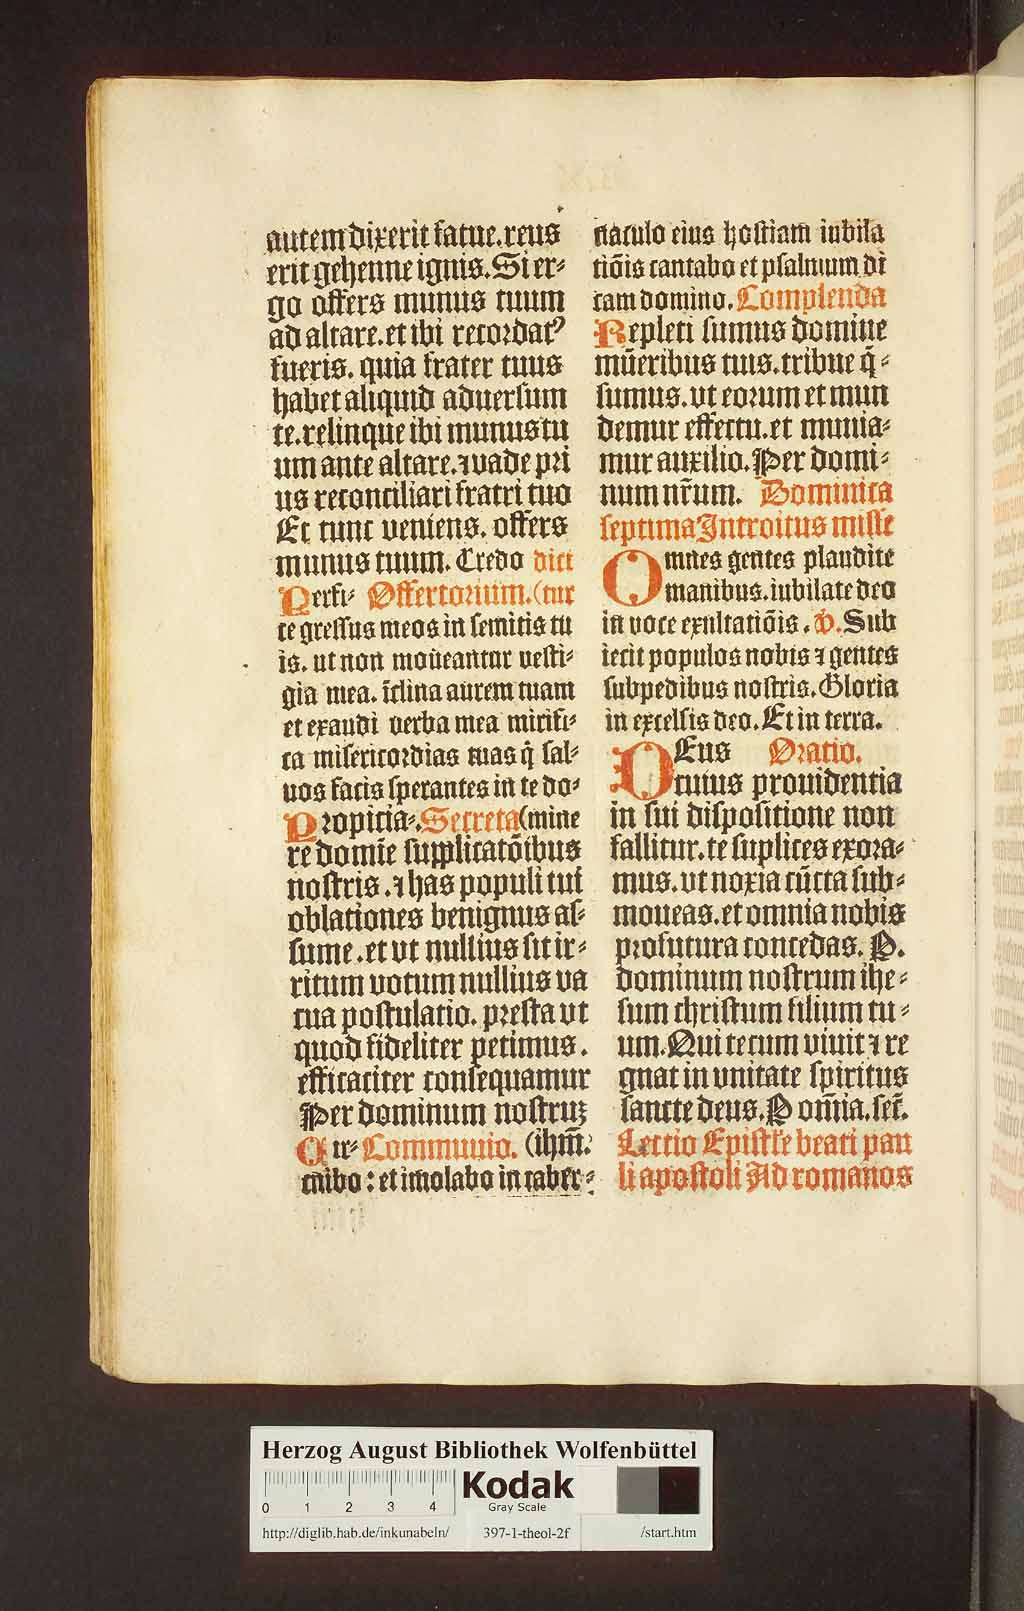 autem dixerit fatue. reus
erit gehenne ignis. Si er⸗
go offers munus tuum
ad altare. et ibi recordatꝰ
fueris. quia frater tuus
habet aliquid aduersum
te. relinque ibi munus tu
um ante altare. ⁊ vade pri
us reconciliari fratri tuo
Et tunc veniens. offers
munus tuum. Credo dici
Perfi⸗ Offertorium. (tur
te gressus meos in semitis tu
is. ut non moueantur vesti⸗
gia mea. īclina aurem tuam
et exaudi verba mea mirifi⸗
ca misericordias tuas q̄ sal⸗
uos facis sperantes in te do⸗
Propicia⸗. Secreta (mine
re domīe supplicatōibus
nostris. ⁊ has populi tui
oblationes benignus as⸗
sume. et ut nullius sit ir⸗
ritum votum nullius va
cua postulatio. presta ut
quod fideliter petimus.
efficaciter consequamur
Per dominum nostruꝫ
Cir⸗ Communio. (ihm̄.
cuibo: et imolabo in taber⸗
naculo eius hostiam iubila
tiōis cantabo et psalmum di
cam domino. Complenda
Repleti sumus domine
mūeribus tuis. tribue q̄⸗
sumus. ut eorum et mun
demur effectu. et munia⸗
mur auxilio. Per domi⸗
num nr̄um. Dominica
septima Introitus misse
Omnes gentes plaudite
manibus. iubilate deo
in voce exultatiōis. v. Sub
iecit populos nobis ⁊ gentes
subpedibus nostris. Gloria
in excelsis deo. Et in terra.
DEus Oratio.
cuius prouidentia
in sui dispositione non
fallitur. te suplices exora⸗
mus. ut noxia cūcta sub⸗
moueas. et omnia nobis
profutura concedas. P.
dominum nostrum ihe⸗
sum christum filium tu⸗
um. Qui tecum viuit ⁊ re
gnat in vnitate spiritus
sancte deus. P om̄ia. sec̄.
Lectio Epistl̄e beati pau
li apostoli Ad romanos
Herzog August Bibliothek Wolfenbüttel
0 1 2 3 4
Kodak
Gray Scale
http://diglib.hab.de/inkunabeln/ 397-1-theol-2f /start.htm